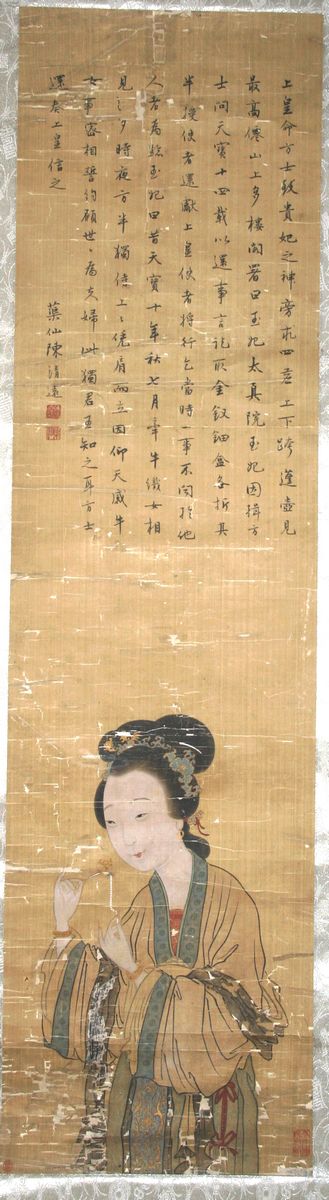 上皇命方士致貴妃之神旁求四虛上下跨蓬壺見
最高僊山上多樓閣署曰玉妃太真院玉妃因揖方
士問天寶十四載以還事言訖取金釵鈿盒各折其
半授使者還獻上皇使者將行乞當時一事不聞於他
人者為驗玉妃曰昔天寶十年秋七月牽牛織女相
見之夕時夜方半獨侍上上凭肩而立因仰天感牛
女事密相誓約願世世為夫婦此獨君王知之耳方士
還奏上皇信之
藥仙陳清遠